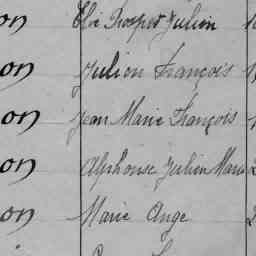 on Elie Prosper Julien
on Julien François
on Jean Marie François
on Alphonse Julien Marie
on Marie Ange